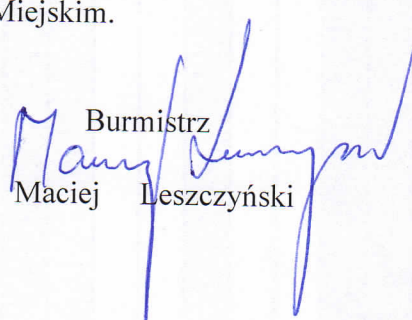 Miejskim.
Burmistrz
Maciej Leszczyński